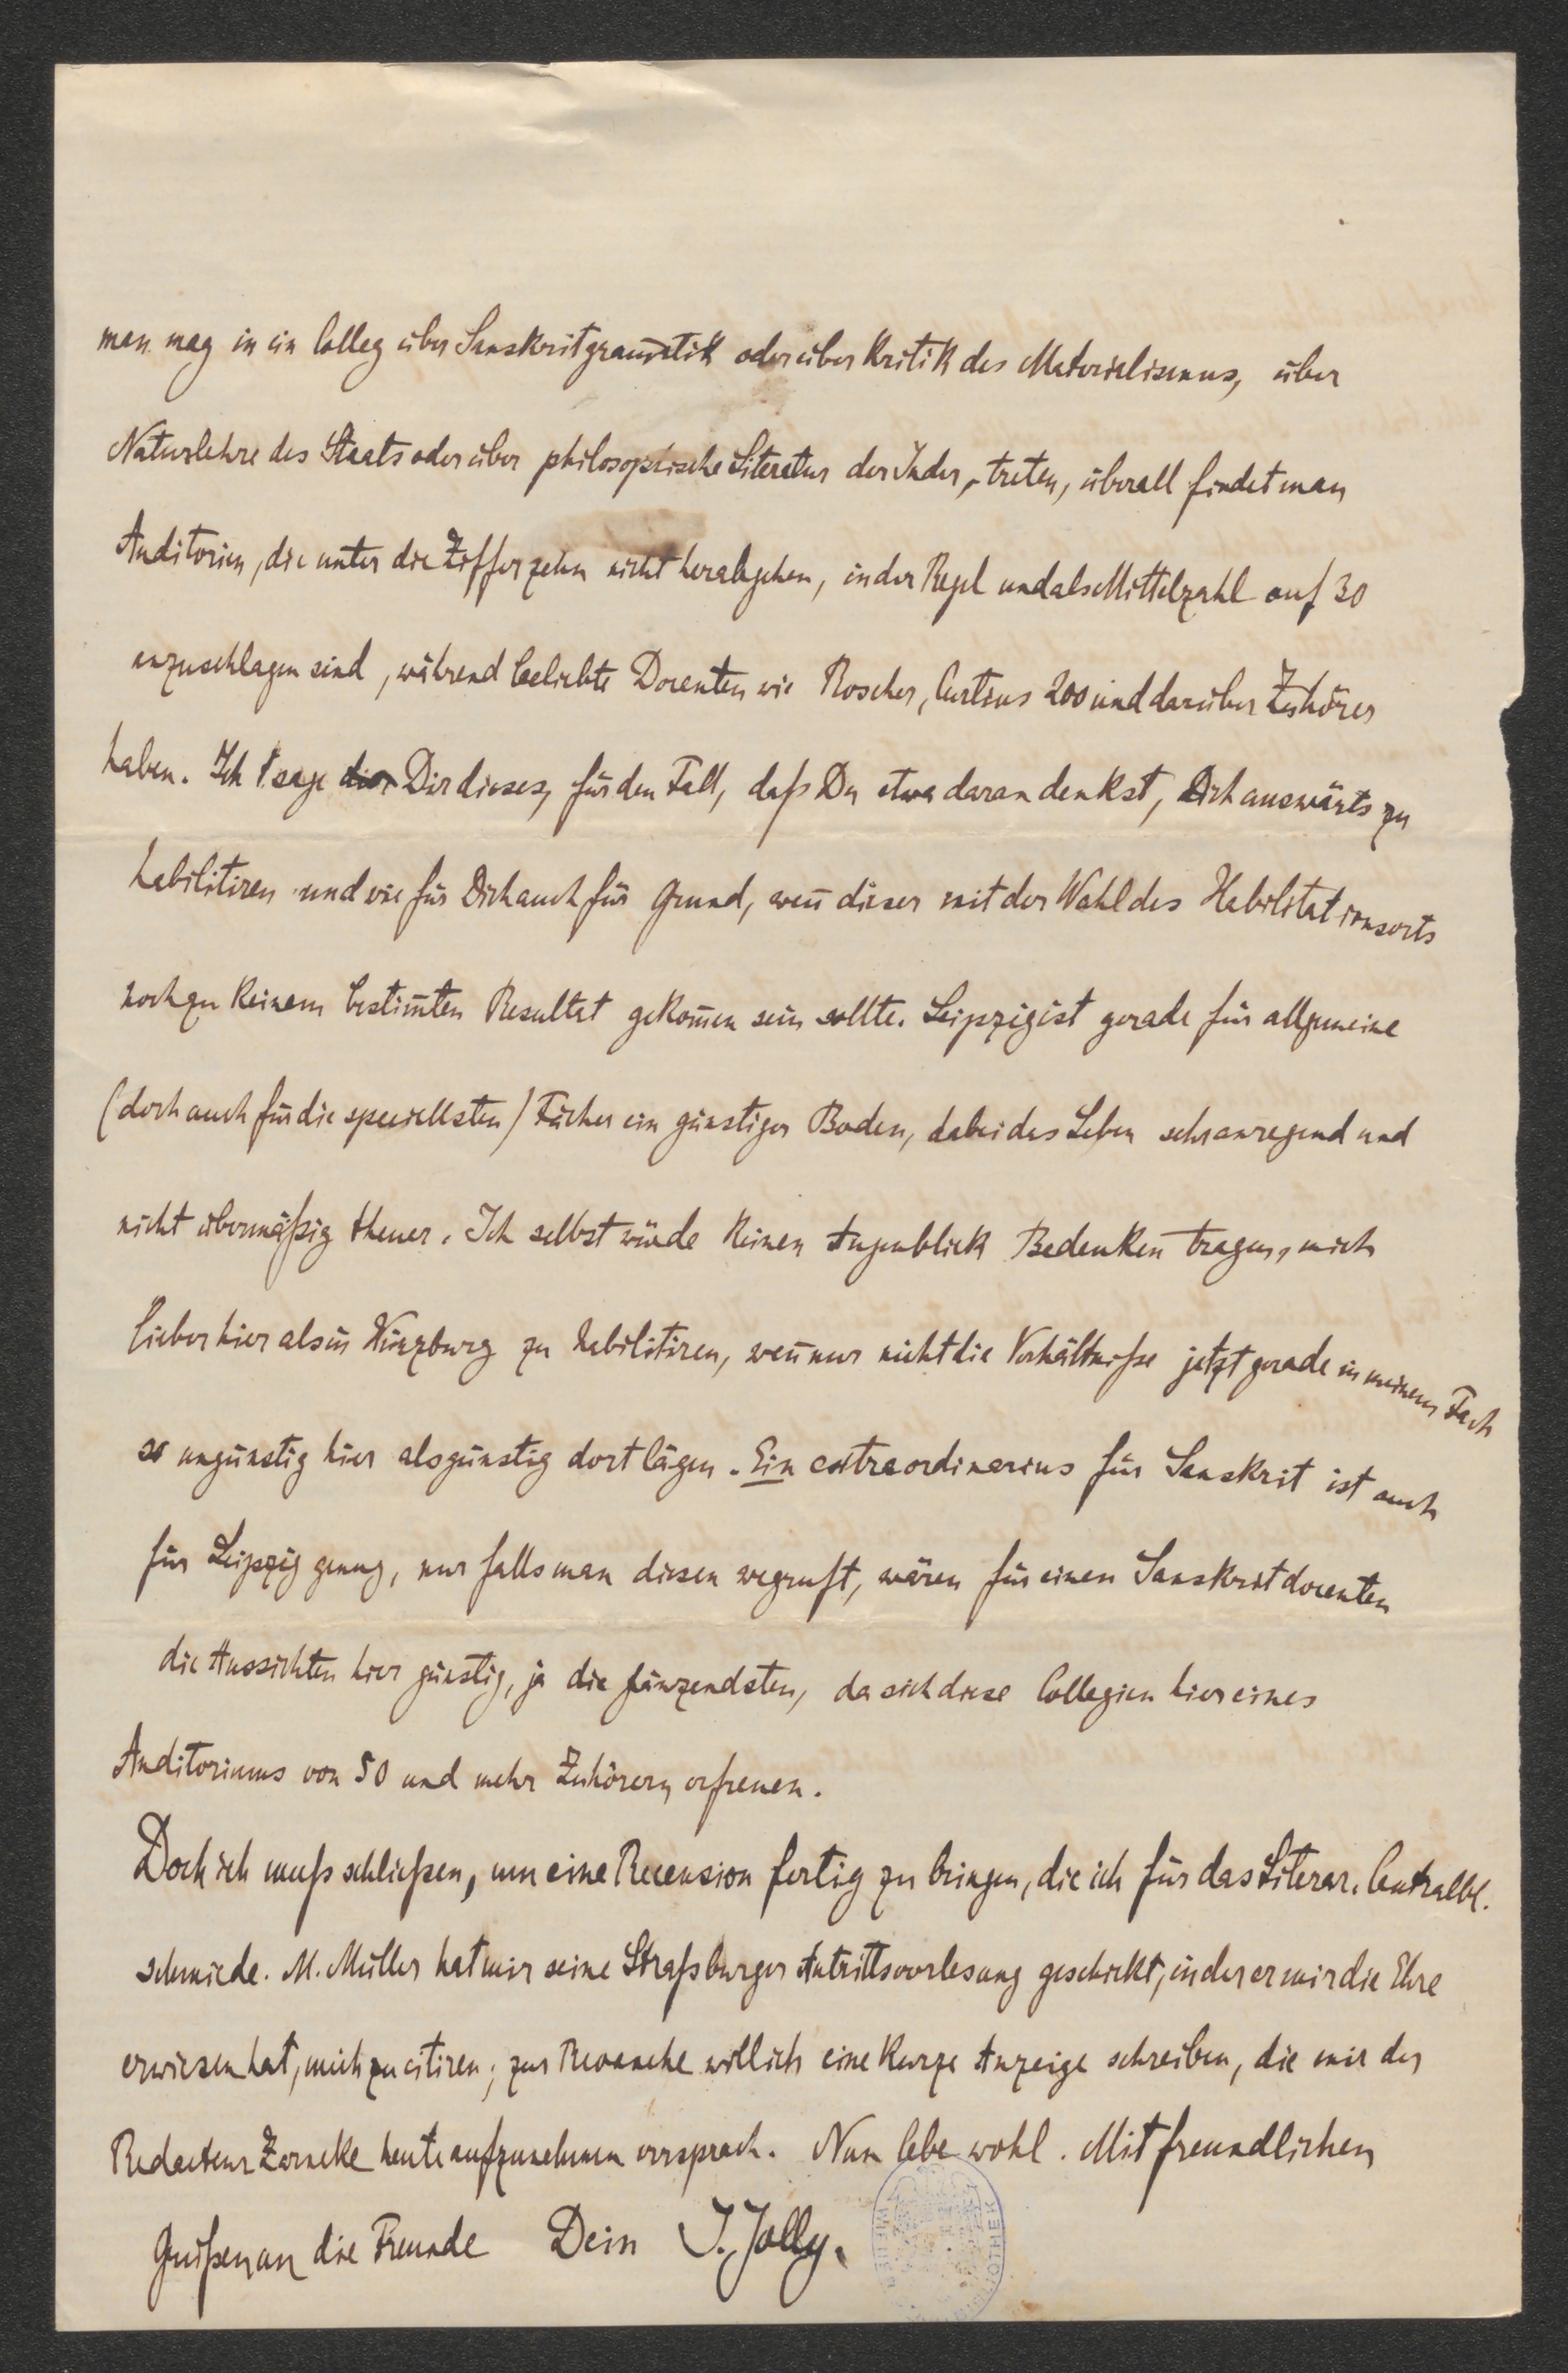 man mag in ein Colleg über Sanskritgram̅atik oder über Kritik des Materialismus, über
Naturlehre des Staats oder über philosophische Literatur der Inder, treten, überall findet man
Auditorien, die unter die Ziffer zehn nicht herabgehen, in der Regel und als Mittelzahl auf 30
anzuschlagen sind, während beliebte Docenten wie Roscher, Curtius 200 und darüber Zuhörer
haben. Ich sage Dir dieses, für den Fall, daß Du etwa daran denkst, Dich auswärts zu
habilitiren und wie für Dich auch für Grund, wen̅ dieser mit der Wahl des Habilitationsorts
noch zu keinem bestim̅ten Resultat gekom̅en sein sollte. Leipzig ist gerade für allgemeine
(doch auch für die speciellsten) Fächer ein günstiger Boden, dabei das Leben sehr anregend und
nicht übermäßig theuer. Ich selbst würde keinen Augenblick Bedenken tragen, mich
lieber hier als in Würzburg zu habilitiren, wen̅ nur nicht die Verhältniße jetzt gerade in meinem Fach
so ungünstig hier als günstig dort lägen. Ein extraordinarius für Sanskrit ist auch
für Leipzig genug, nur falls man diesen wegruft, wären für einen Sanskritdocenten
die Aussichten hier günstig, ja die glänzendsten, da sich diese Collegien hier eines
Auditoriums von 50 und mehr Zuhörern erfreuen.
Doch ich muß schließen, um eine Recension fertig zu bringen, die ich für das Literar. Centralbl.
schmiede. M. Müller hat mir seine Straßburger Antrittsvorlesung geschickt, in der er mir die Ehre
erwiesen hat, mich zu citiren; zur Revanche will ich eine kurze Anzeige schreiben, die mir der
Redacteur Zarncke heute aufzunehmen versprach. Nun lebe wohl. Mit freundlichen
Grüßen an die Freunde Dein J. Jolly.